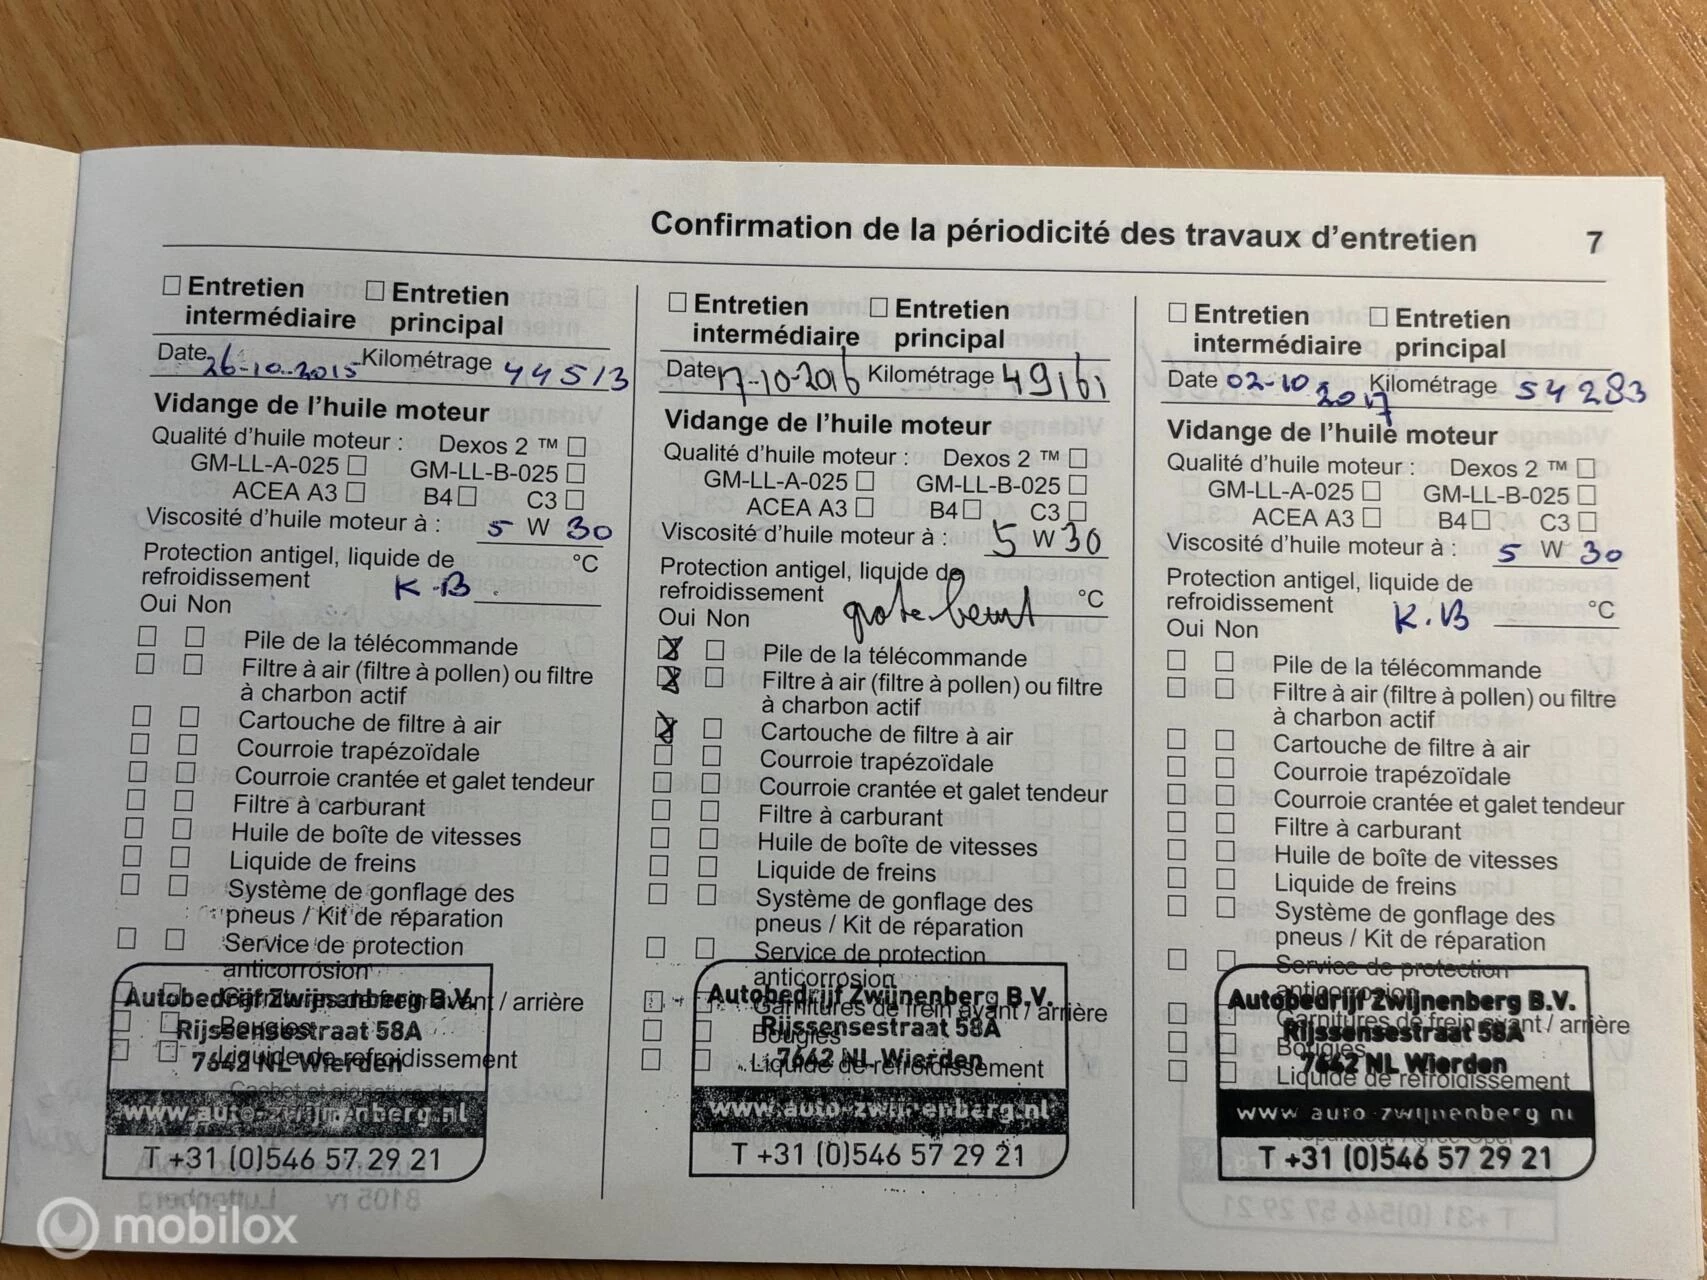 Confirmation de la périodicité des travaux d'entretien 7
☐ Entretien intermédiaire ☐ Entretien principal
Date 26-10-2015 Kilométrage 44513
Vidange de l'huile moteur
Qualité d'huile moteur : Dexos 2 ™ ☐
GM-LL-A-025 ☐ GM-LL-B-025 ☐
ACEA A3 ☐ B4 ☐ C3 ☐
Viscosité d'huile moteur à : 5 W 30
Protection antigel, liquide de
refroidissement K.B. °C
Oui Non
☐ ☐ Pile de la télécommande
☐ ☐ Filtre à air (filtre à pollen) ou filtre
à charbon actif
☐ ☐ Cartouche de filtre à air
☐ ☐ Courroie trapézoïdale
☐ ☐ Courroie crantée et galet tendeur
☐ ☐ Filtre à carburant
☐ ☐ Huile de boîte de vitesses
☐ ☐ Liquide de freins
☐ ☐ Système de gonflage des
pneus / Kit de réparation
☐ ☐ Service de protection
anticorrosion
☐ ☐ Garnitures de frein avant / arrière
☐ ☐ Bougies
☐ ☐ Liquide de refroidissement
Cachet et signature du
Autobedrijf Zwijnenberg B.V.
Rijssensestraat 58A
7642 NL Wierden
www.auto-zwijnenberg.nl
T +31 (0)546 57 29 21
☐ Entretien intermédiaire ☐ Entretien principal
Date 17-10-2016 Kilométrage 49161
Vidange de l'huile moteur
Qualité d'huile moteur : Dexos 2 ™ ☐
GM-LL-A-025 ☐ GM-LL-B-025 ☐
ACEA A3 ☐ B4 ☐ C3 ☐
Viscosité d'huile moteur à : 5 W 30
Protection antigel, liquide de
refroidissement grote beurt °C
Oui Non
☒ ☐ Pile de la télécommande
☒ ☐ Filtre à air (filtre à pollen) ou filtre
à charbon actif
☒ ☐ Cartouche de filtre à air
☐ ☐ Courroie trapézoïdale
☐ ☐ Courroie crantée et galet tendeur
☐ ☐ Filtre à carburant
☐ ☐ Huile de boîte de vitesses
☐ ☐ Liquide de freins
☐ ☐ Système de gonflage des
pneus / Kit de réparation
☐ ☐ Service de protection
anticorrosion
☐ ☐ Garnitures de frein avant / arrière
☐ ☐ Bougies
☐ ☐ Liquide de refroidissement
Autobedrijf Zwijnenberg B.V.
Rijssensestraat 58A
7642 NL Wierden
www.auto-zwijnenberg.nl
T +31 (0)546 57 29 21
☐ Entretien intermédiaire ☐ Entretien principal
Date 02-10-2017 Kilométrage 54283
Vidange de l'huile moteur
Qualité d'huile moteur : Dexos 2 ™ ☐
GM-LL-A-025 ☐ GM-LL-B-025 ☐
ACEA A3 ☐ B4 ☐ C3 ☐
Viscosité d'huile moteur à : 5 W 30
Protection antigel, liquide de
refroidissement K.B °C
Oui Non
☐ ☐ Pile de la télécommande
☐ ☐ Filtre à air (filtre à pollen) ou filtre
à charbon actif
☐ ☐ Cartouche de filtre à air
☐ ☐ Courroie trapézoïdale
☐ ☐ Courroie crantée et galet tendeur
☐ ☐ Filtre à carburant
☐ ☐ Huile de boîte de vitesses
☐ ☐ Liquide de freins
☐ ☐ Système de gonflage des
pneus / Kit de réparation
☐ ☐ Service de protection
anticorrosion
☐ ☐ Garnitures de frein avant / arrière
☐ ☐ Bougies
☐ ☐ Liquide de refroidissement
Réparateur Agréé Opel
Autobedrijf Zwijnenberg B.V.
Rijssensestraat 58A
7642 NL Wierden
www.auto-zwijnenberg.nl
T +31 (0)546 57 29 21
mobilox